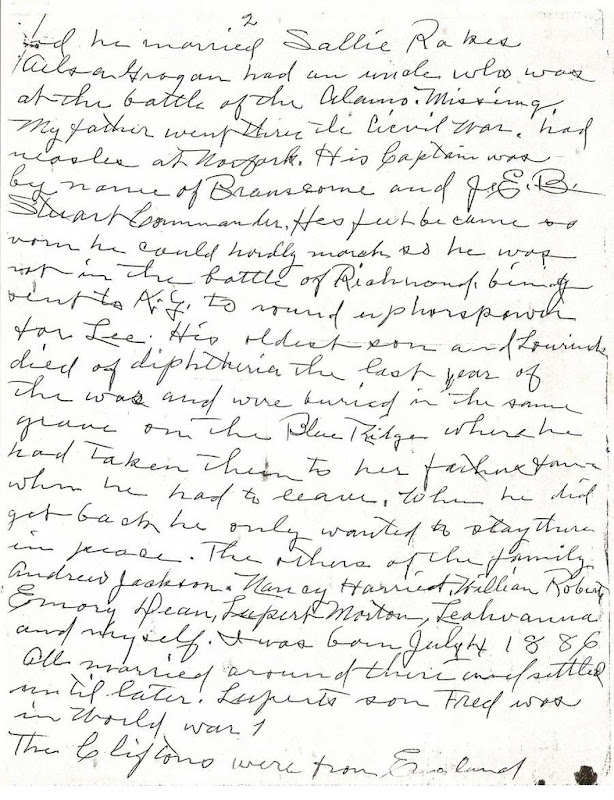 2
he married Sallie Rakes
Grogan had an uncle who was
at the battle of the Alamo. Missing,
My father went thru the Civil War. had
measles at Norfork. His Captain was
by name of Branscome and J.E.B.
Stuart Commander. His feet became so
worn he could hardly march so he was
not in the battle of Richmond, being
sent to to round up horspower
for Lee. His oldest son and
died of diphtheria the last year of
the war and were buried in the same
grave on the Blue Ridge where he
had taken them to her fathers
when he had to leave. When he did
get back he only wanted to stay there
in peace. The others of the family
Andrew Jackson. Nancy Harriet, William Robert,
Emory Dean, Lupert Morton, Leahvanna
and myself. I was born July 4 1886
All married around there and settled
until later. Luperts son Fred was
in World war 1
The Cliftons were from England